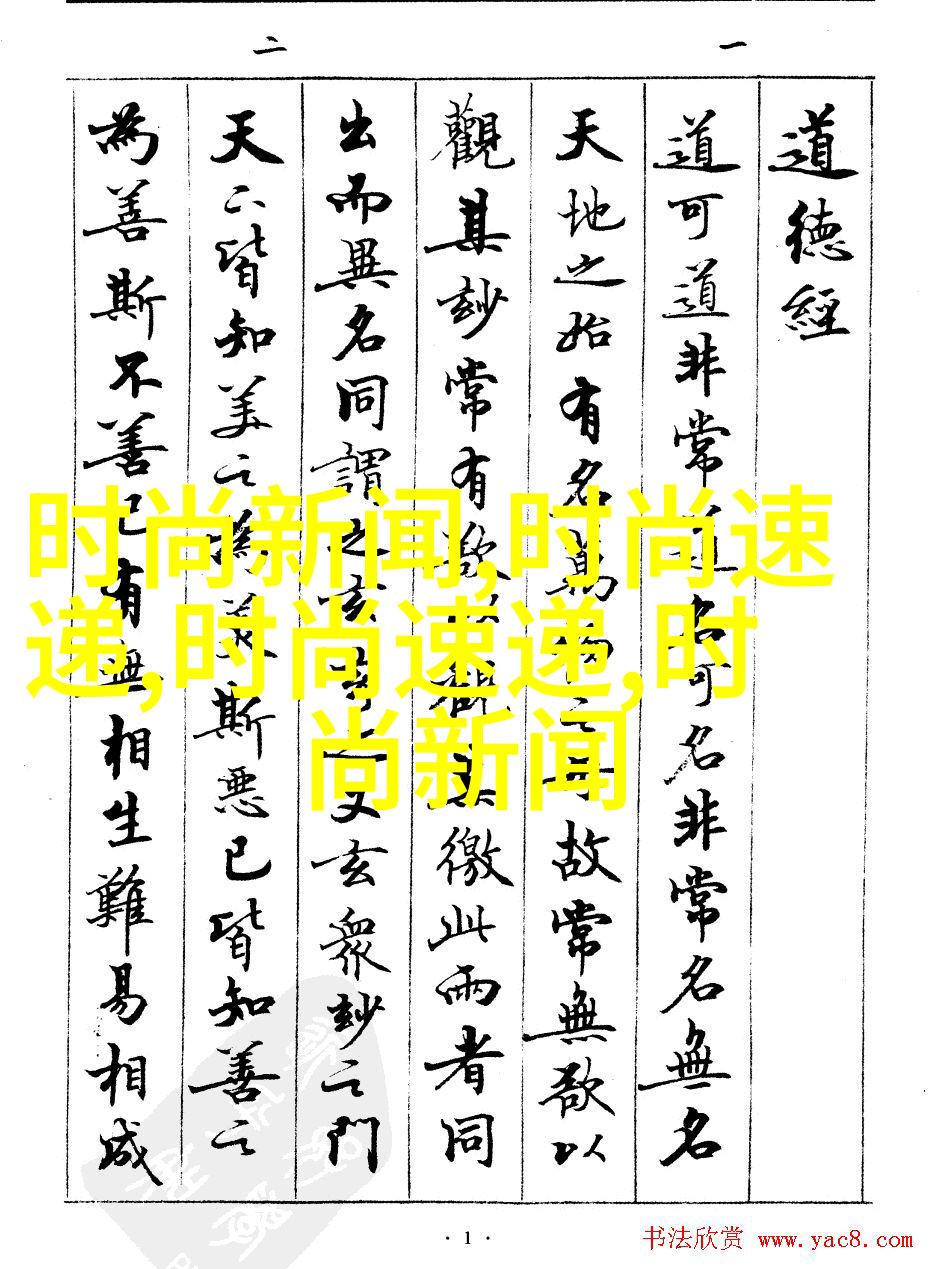 一
二
道德經
道可道非常道名可名非常名無名
天地之始有名萬物之母故常無欲以
觀其玅常有欲以觀其徼此兩者同
出而異名同謂之玄玄之又玄眾玅之門
天下皆知美之為美斯惡已皆知善之
為善斯不善已有無相生難易相成
时尚新闻,时尚速
递,时尚速递,时
尚新闻
· 1 ·
书法欣赏 www.yac8.com